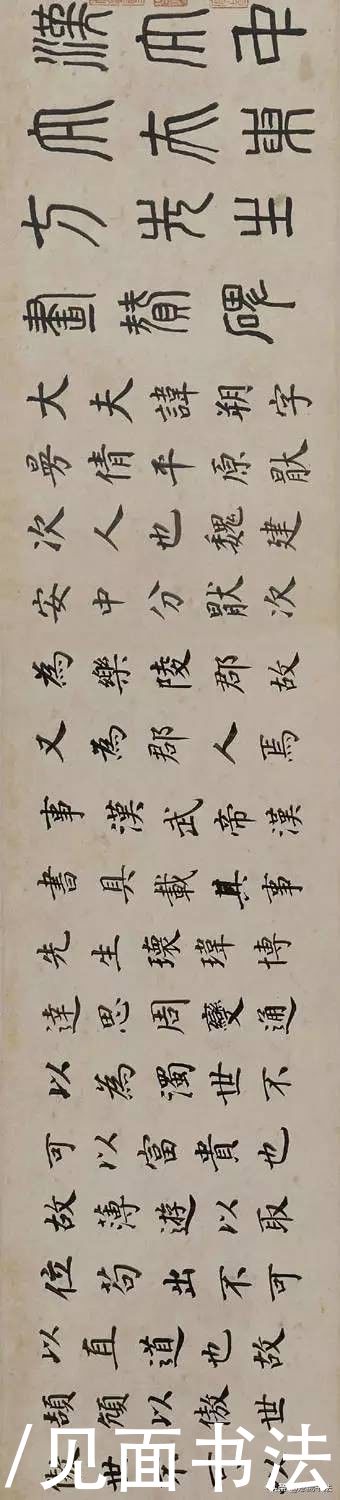 漢大中
大夫東
方先生
畫贊碑
大夫諱朔字
曼倩平原猒
次人也魏建
安中分猒次
為樂陵郡故
又為郡人焉
事漢武帝漢
書具載其事
先生瓌瑋博
達思周變通
以為濁世不
可以富貴也
故薄遊以取
位苟出不可
以直道也故
頡頏以傲世
/见面书法